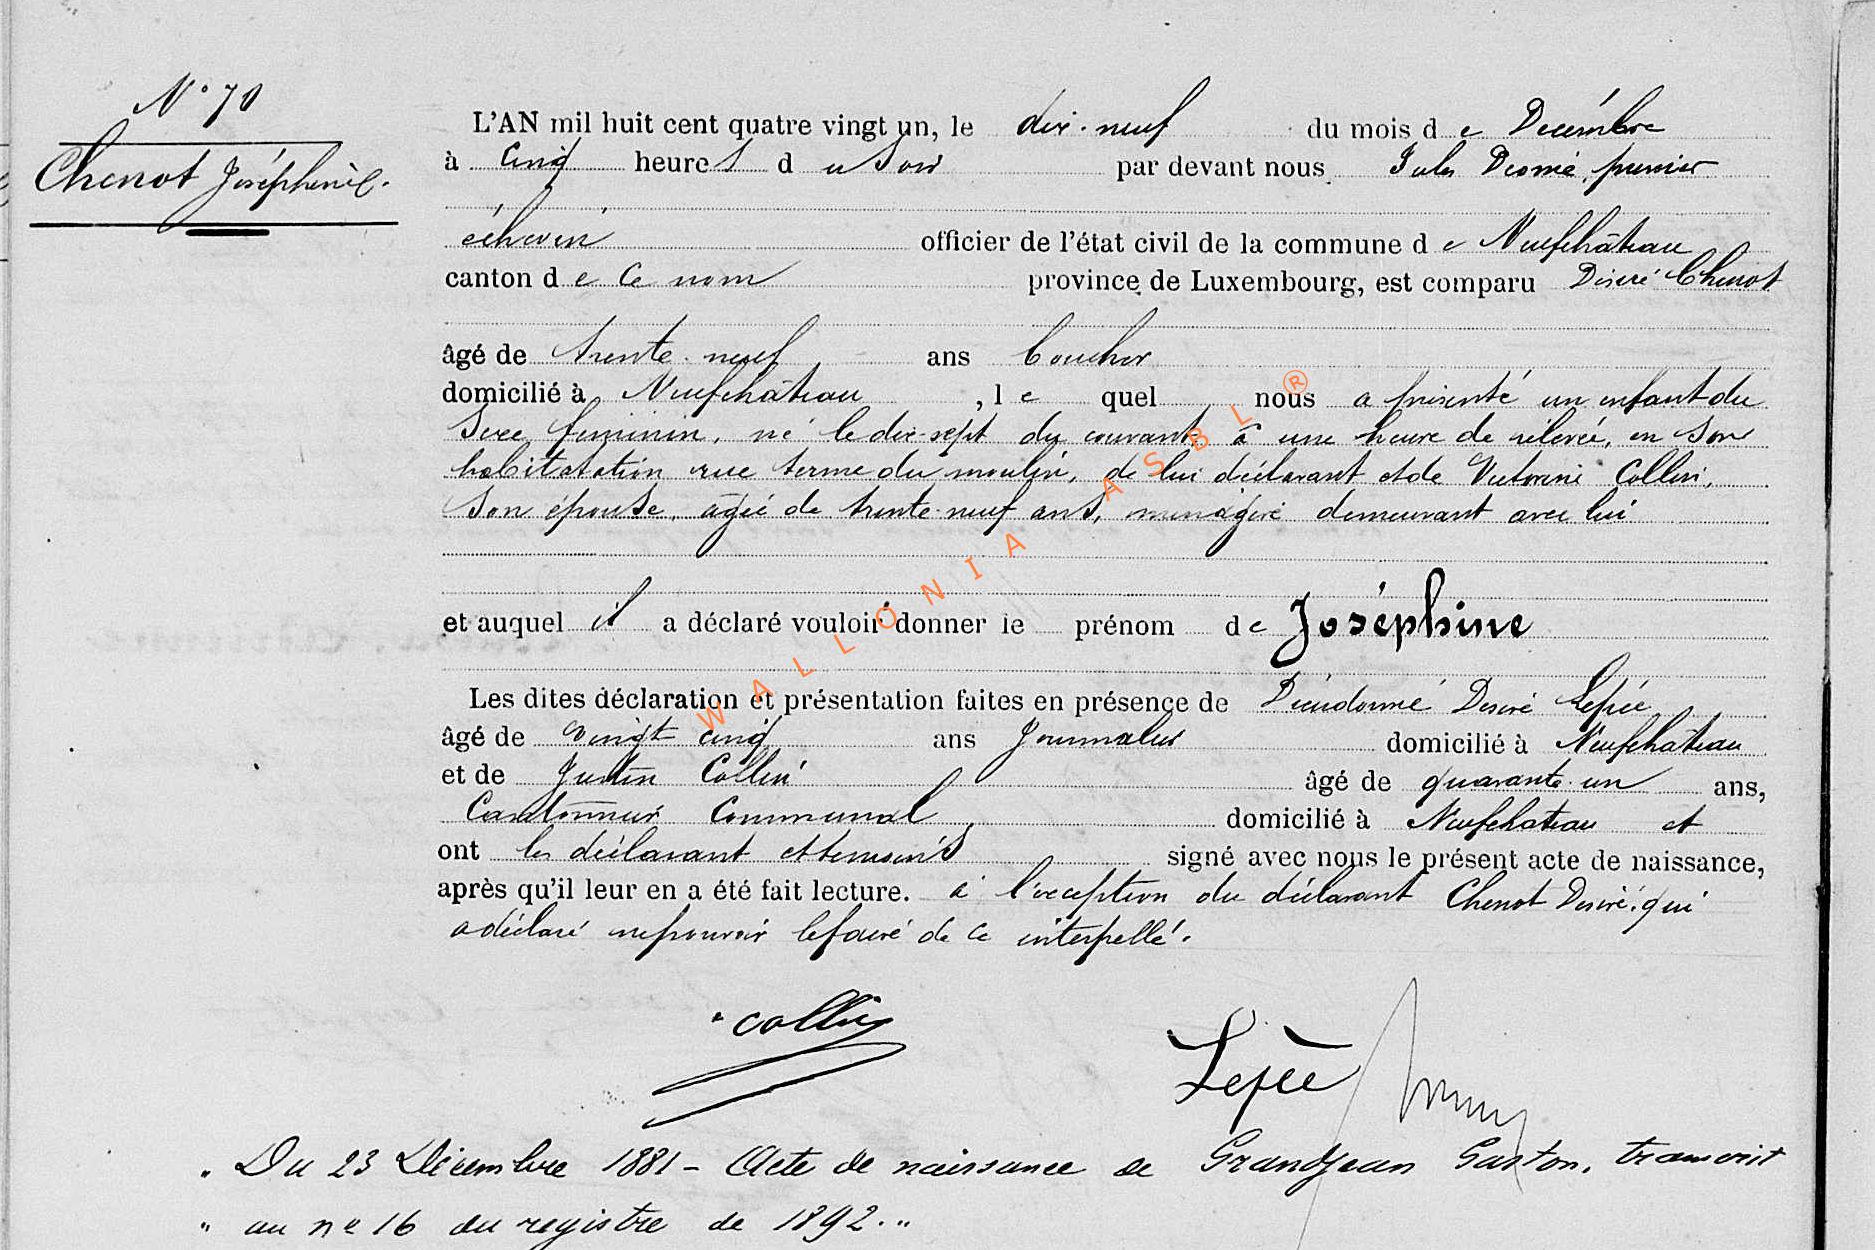 N° 70
Chenot Joséphine.
L'AN mil huit cent quatre vingt un, le dix-neuf du mois de Décembre
à cinq heures du Soir par devant nous Jules premier
échevin officier de l'état civil de la commune de Neufchâteau
canton de ce nom province de Luxembourg, est comparu Désiré Chenot
âgé de trente-neuf ans boucher
domicilié à Neufchâteau, le quel nous a présenté un enfant du
Sexe féminin, né le dix-sept du courant, à une heure de relevée, en son
habitatation rue terme du moulin, de lui déclarant et de Victorine Collin,
son épouse, agée de trente-neuf ans, ménagère demeurant avec lui
et auquel il a déclaré vouloir donner le prénom de Joséphine
Les dites déclaration et présentation faites en présence de Dieudonné Désiré Lepée
âgé de vingt cinq ans Journalier domicilié à Neufchâteau
et de Justin Collin âgé de quarante-un ans,
Cantonnier Communal domicilié à Neufchateau et
ont les déclarant et témoins signé avec nous le présent acte de naissance,
après qu'il leur en a été fait lecture. à l'exception du déclarant Chenot Désiré, qui
a déclaré ne pouvoir le faire de ce interpellé.
Collin
Lepée
„ Du 23 Décembre 1881 - Acte de naissance de Grandjean Gaston, transcrit
„ au n° 16 du registre de 1892. „
WALLONIA ASBL ®